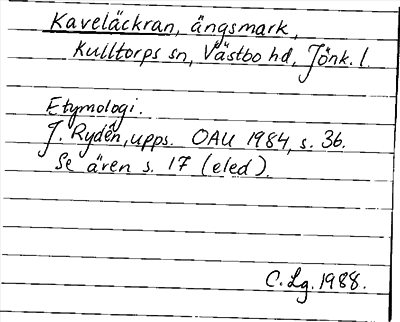 Kaveläckran, ängsmark,
Kulltorps sn, Västbo hd, Jönk. l.
Etymologi.
J. Rydén, upps. OAU 1984, s. 36.
Se även s. 17 (eled).
C. Lg. 1988.